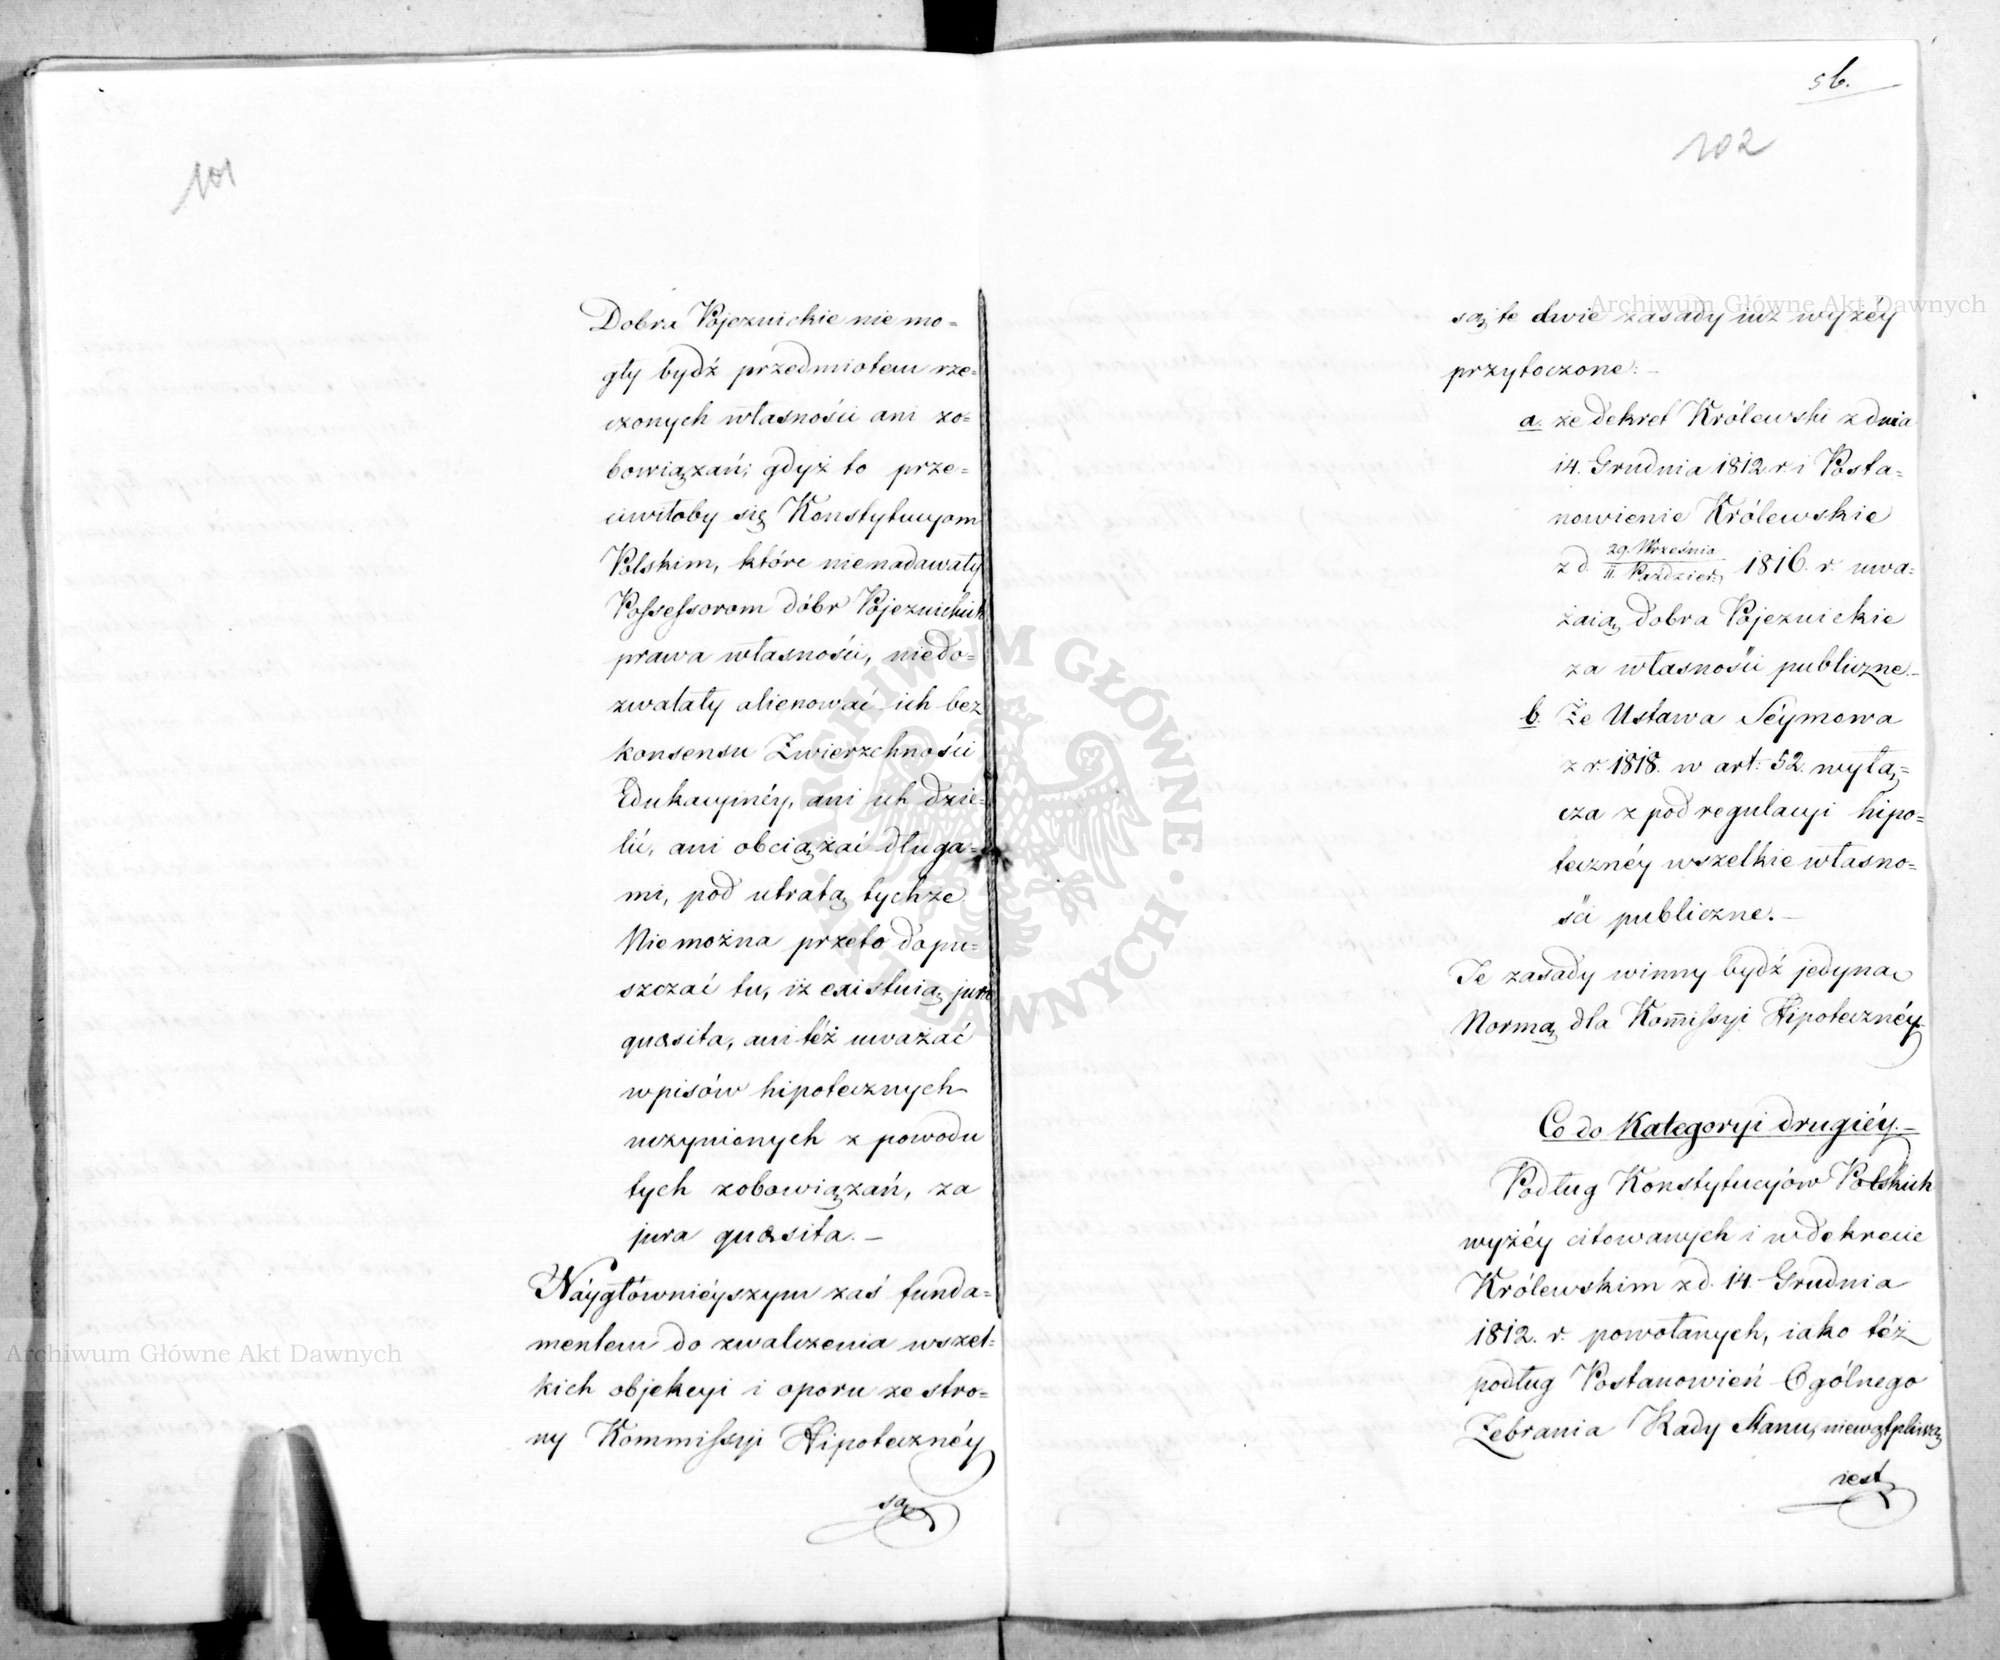 101
Dobra Pojezuickie nie mo=
gły bydź przedmiotem rze=
czonych własności ani zo=
bowiązań; gdyż to prze=
ciwiłoby się Konstytucyom
Polskim, które nienadawały
Possessorom dóbr Pojezuickich
prawa własności, niedo=
zwalały alienować ich bez
konsensu Zwierzchności
Edukacyinéy, ani ich dzie=
lić, ani obciążać długa=
mi, pod utratą tychże.
Nie można przeto dopu=
szczać tu, iż existuią jura
quæsita, ani téż uważać
wpisów hipotecznych
uczynionych z powodu
tych zobowiązań, za
jura quæsita. —
Náygłównieyszym zaś funda=
mentem do zwalczenia wszel=
kich objekcyi i oporu ze stro=
ny Kommissyi Hipotecznéy
są
56.
102
są te dwie zasady iuż wyżéy
przytoczone: —
a. że dekret Królewski z dnia
14. Grudnia 1812 r. i Posta=
nowienie Królewskie
z d. 29. Września / 11. Paździer. 1816. r. uwa=
żaią dobra Pojezuickie
za własności publiczne. —
b. Że Ustawa Séymowa
z r. 1818. w art: 52. wyłą=
cza z pod regulacyi hipo=
tecznéy wszelkie własno=
ści publiczne. —
Te zasady winny bydź jedyną
Normą dla Kom̄issyi Hipotecznéy.
Co do Kategoryi drugiéy. —
Podług Konstytucyów Polskich
wyżéy citowanych i w dekrecie
Królewskim z d. 14 Grudnia
1812. r. powołanych, iako téż
podług Postanowień Ogólnego
Zebrania Rady Stanu, niewątpliwą
iest
Archiwum Główne Akt Dawnych
Archiwum Główne Akt Dawnych
ARCHIWUM GŁÓWNE AKT DAWNYCH